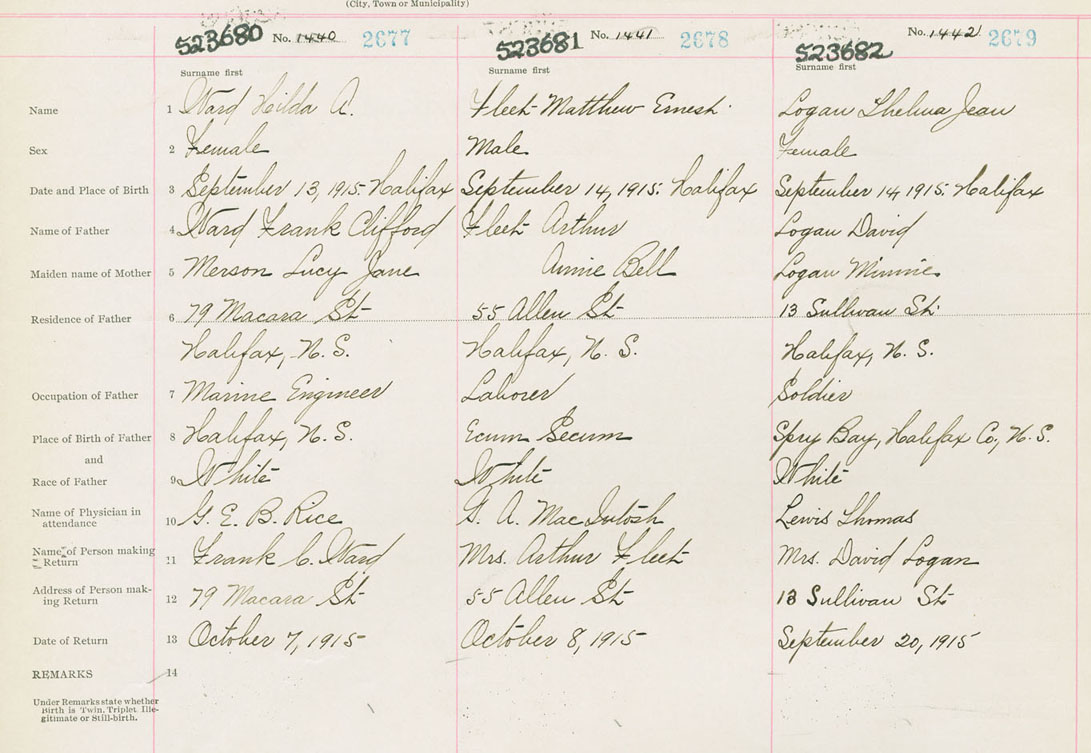 (City, Town or Municipality)
523680 No. 1440 2677 523681 No. 1441 2678 523682 No. 1442 2679
Surname first Surname first Surname first
Name 1 Ward Hilda A. Fleet Matthew Ernest Logan Thelma Jean
Sex 2 Female Male Female
Date and Place of Birth 3 September 13, 1915 Halifax September 14, 1915. Halifax September 14, 1915. Halifax
Name of Father 4 Ward Frank Clifford Fleet Arthur Logan David
Maiden name of Mother 5 Merson Lucy Jane Annie Bell Logan Minnie
Residence of Father 6 79 Macara St 55 Allen St 13 Sullivan St.
Halifax, N. S. Halifax, N. S. Halifax, N. S.
Occupation of Father 7 Marine Engineer Laborer Soldier
Place of Birth of Father 8 Halifax, N. S. Ecum Secum Spry Bay, Halifax Co, N. S.
and
Race of Father 9 White White White
Name of Physician in
attendance 10 G. E. B. Rice G. A. MacIntosh Lewis Thomas
Name of Person making
Return 11 Frank C. Ward Mrs. Arthur Fleet Mrs. David Logan
Address of Person mak-
ing Return 12 79 Macara St 55 Allen St 13 Sullivan St
Date of Return 13 October 7, 1915 October 8, 1915 September 20, 1915
REMARKS 14
Under Remarks state whether
Birth is Twin, Triplet, Ille-
gitimate or Still-birth.